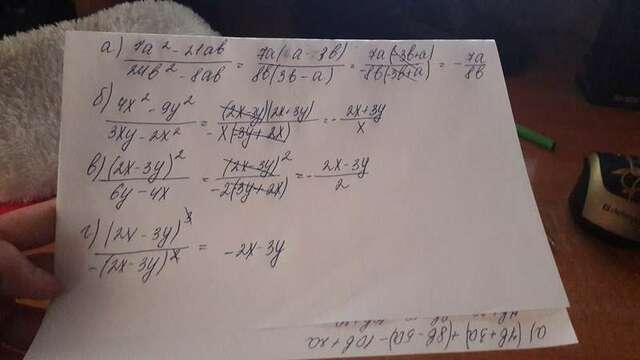 а) 7a² - 21ab / 24b² - 8ab = 7a(a - 3b) / 8b(3b - a) = 7a(-3b+a) / -8b(-3b+a) = - 7a / 8b
б) 4x² - 9y² / 3xy - 2x² = (2x-3y)(2x+3y) / -x(3y+2x) = - 2x+3y / x
в) (2x - 3y)² / 6y - 4x = (2x-3y)² / -2(3y+2x) = - 2x-3y / 2
г) (2x - 3y)³ / -(2x - 3y)² = -2x-3y
а) (4b+3a)+(8b-5a)-10b+2a